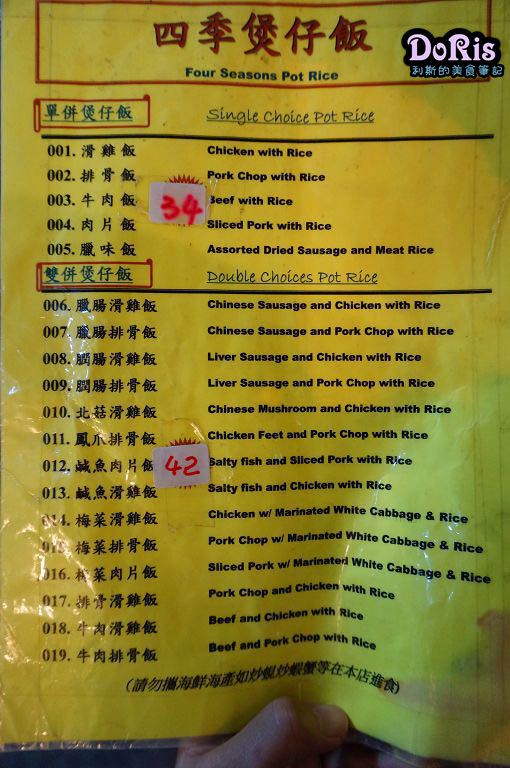 四季煲仔飯
DoRis
利斯的美食筆記
Four Seasons Pot Rice
單併煲仔飯 Single Choice Pot Rice
001. 滑雞飯 Chicken with Rice
002. 排骨飯 Pork Chop with Rice
003. 牛肉飯 Beef with Rice
34
004. 肉片飯 Sliced Pork with Rice
005. 臘味飯 Assorted Dried Sausage and Meat Rice
雙併煲仔飯 Double Choices Pot Rice
006. 臘腸滑雞飯 Chinese Sausage and Chicken with Rice
007. 臘腸排骨飯 Chinese Sausage and Pork Chop with Rice
008. 膶腸滑雞飯 Liver Sausage and Chicken with Rice
009. 膶腸排骨飯 Liver Sausage and Pork Chop with Rice
010. 北菇滑雞飯 Chinese Mushroom and Chicken with Rice
011. 鳳爪排骨飯 Chicken Feet and Pork Chop with Rice
012. 鹹魚肉片飯 Salty fish and Sliced Pork with Rice
42
013. 鹹魚滑雞飯 Salty fish and Chicken with Rice
014. 梅菜滑雞飯 Chicken w/ Marinated White Cabbage & Rice
015. 梅菜排骨飯 Pork Chop w/ Marinated White Cabbage & Rice
016. 梅菜肉片飯 Sliced Pork w/ Marinated White Cabbage & Rice
017. 排骨滑雞飯 Pork Chop and Chicken with Rice
018. 牛肉滑雞飯 Beef and Chicken with Rice
019. 牛肉排骨飯 Beef and Pork Chop with Rice
(請勿攜海鮮海產如炒蜆炒蝦蟹等在本店進食)